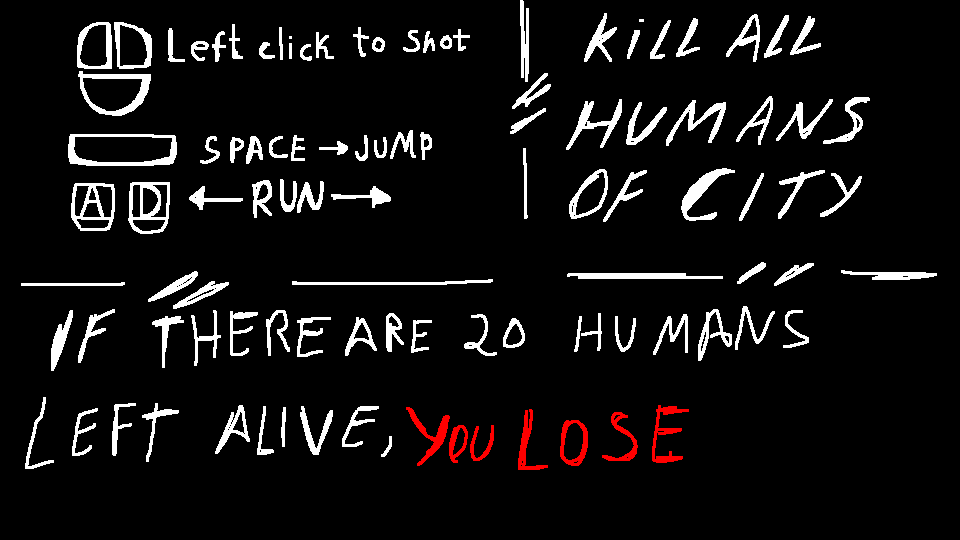 Left click to shot
SPACE → JUMP
A D ← RUN →
KiLL ALL
HUMANS
OF CITY
IF THERE ARE 20 HUMANS
LEFT ALIVE, YOU LOSE